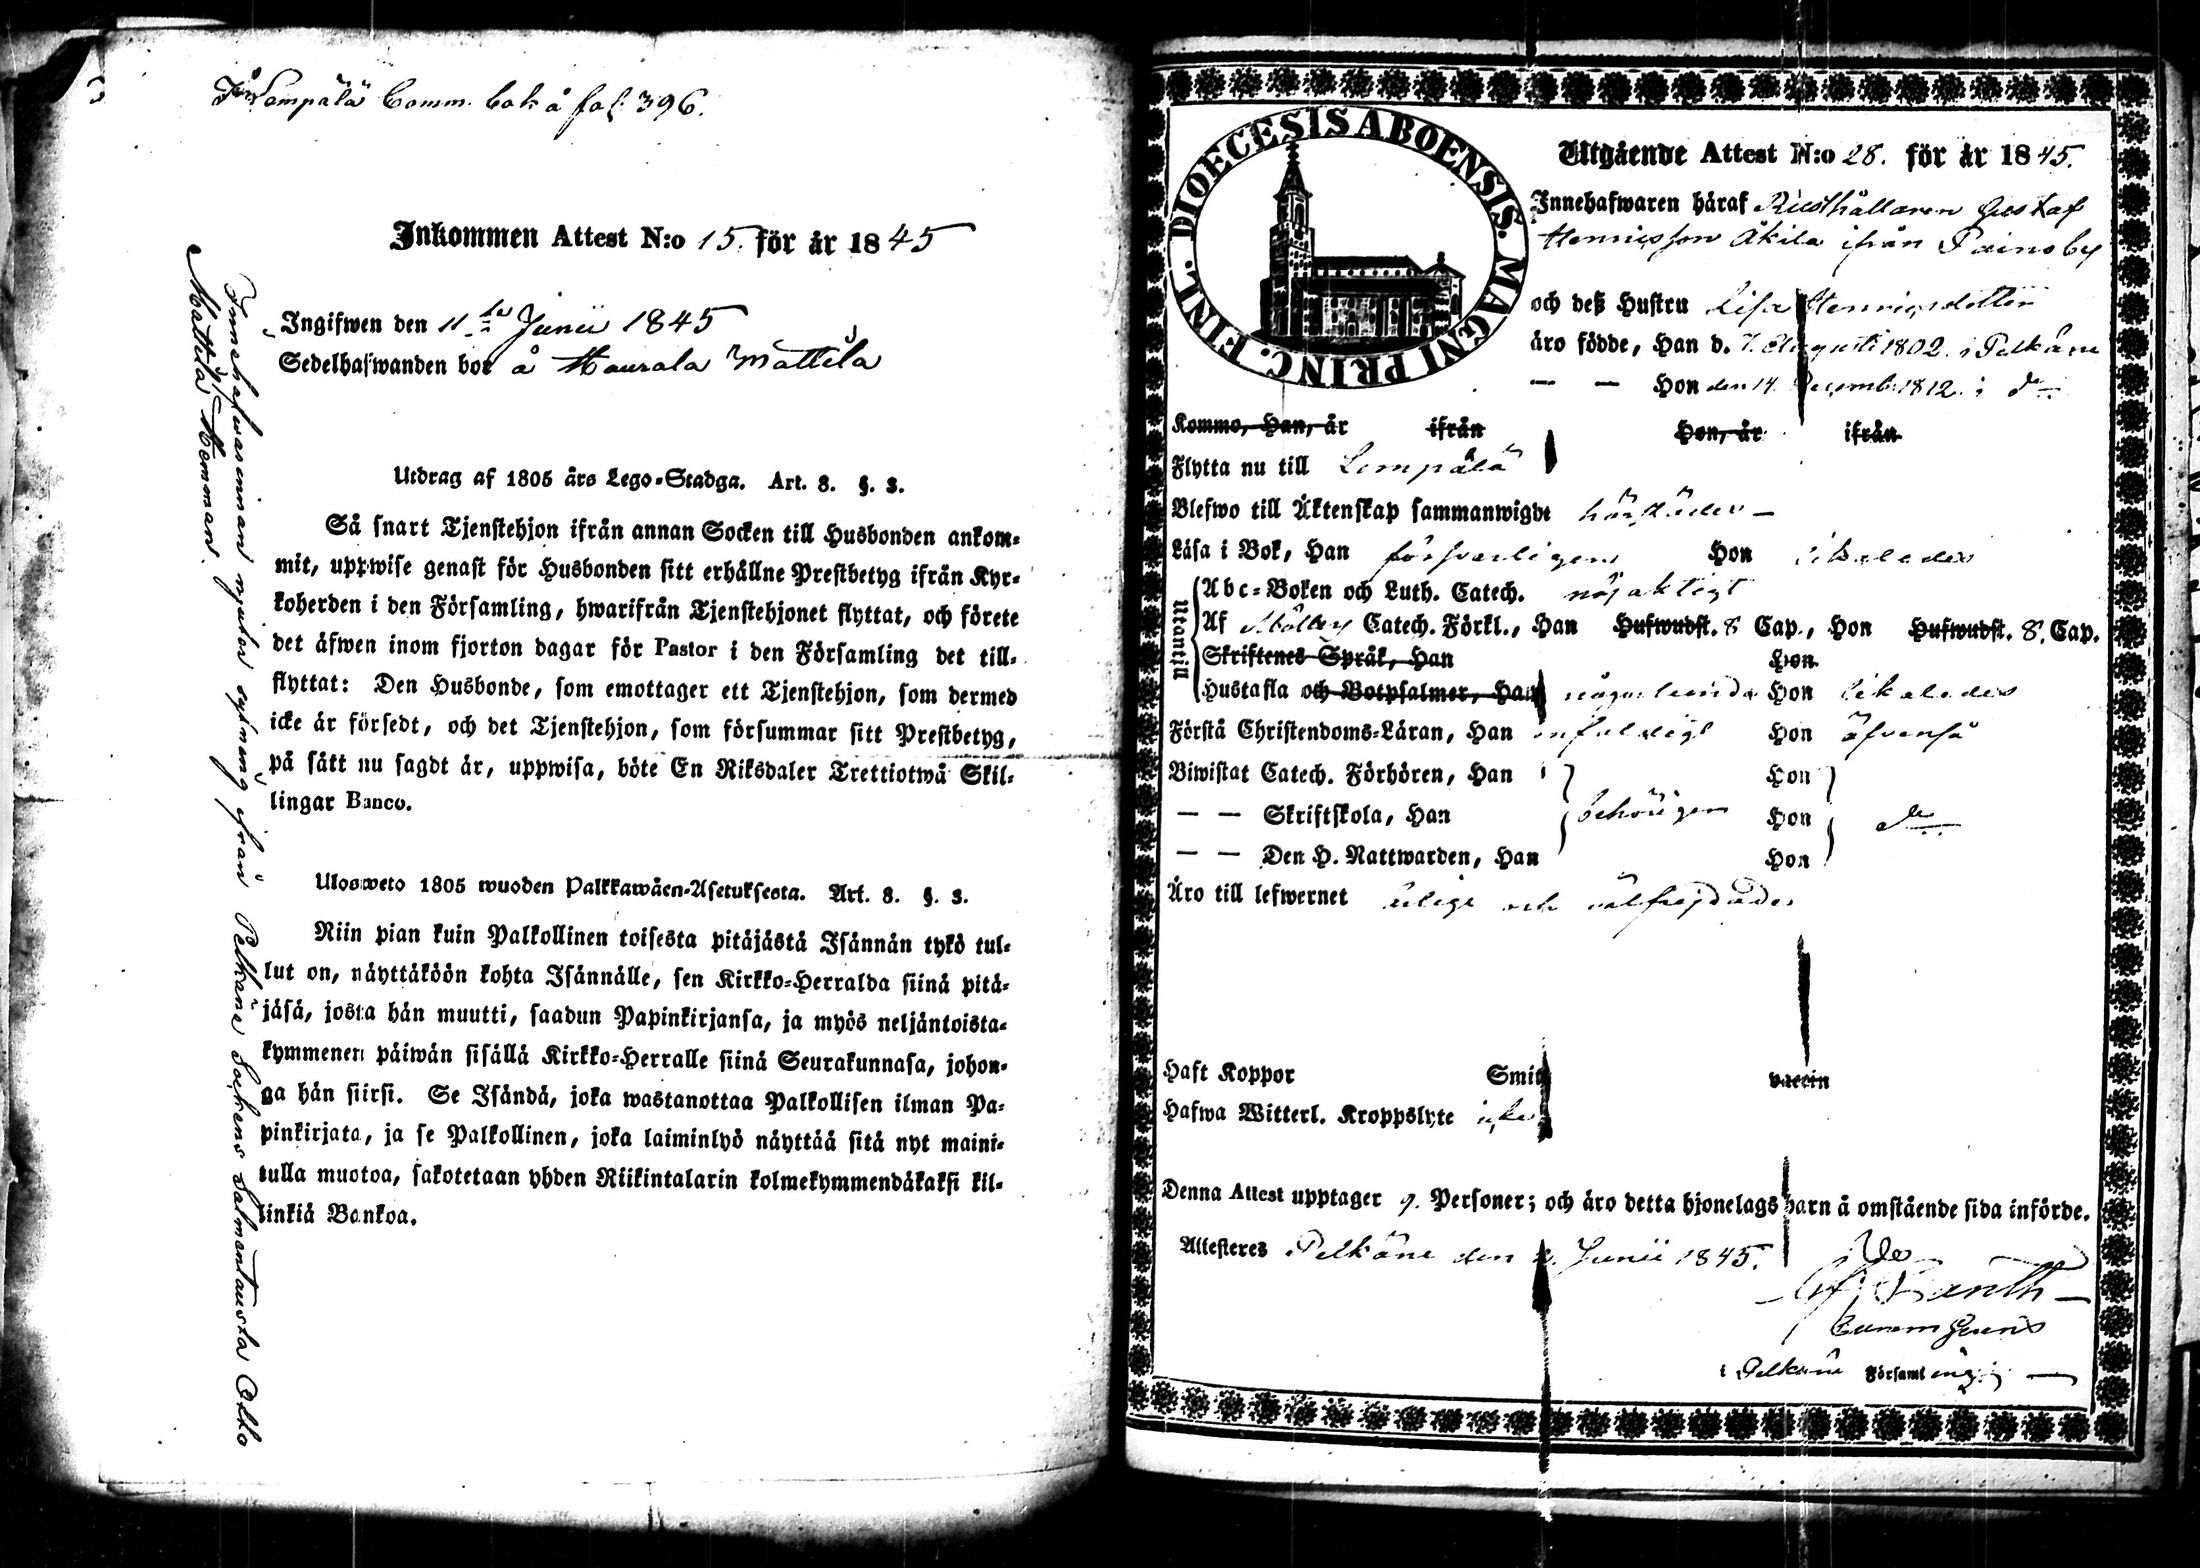 I Lempälä Comm. bok å fol: 396.
Inkommen Attest N:o 15. för år 1845
Ingifwen den 11 Junii 1845
Sedelhafwanden bor å Maurala Mattila
Utdrag af 1805 års Lego-Stadga. Art. 8. §. 3.
Så snart Tjenstehjon ifrån annan Socken till Husbonden ankom-
mit, uppwise genast för Husbonden sitt erhållne Prestbetyg ifrån Kyr-
koherden i den Församling, hwarifrån Tjenstehjonet flyttat, och förete
det äfwen inom fjorton dagar för Pastor i den Församling det till-
flyttat: Den Husbonde, som emottager ett Tjenstehjon, som dermed
icke är försedt, och det Tjenstehjon, som försummar sitt Prestbetyg,
på sätt nu sagdt är, uppwisa, böte En Riksdaler Trettiotwå Skil-
lingar Banco.
Ulosweto 1805 wuoden Palkkawäen-Asetuksesta. Art. 8. §. 3.
Niin pian kuin Palkollinen toisesta pitäjästä Isännän tykö tul-
lut on, näyttäköön kohta Isännälle, sen Kirkko-Herralda siinä pitä-
jäsä, josta hän muutti, saadun Papinkirjansa, ja myös neljäntoista-
kymmenen päiwän sisällä Kirkko-Herralle siinä Seurakunnasa, johon-
ga hän siirsi. Se Isändä, joka wastanottaa Palkollisen ilman Pa-
pinkirjata, ja se Palkollinen, joka laiminlyö näyttää sitä nyt maini-
tulla muotoa, sakotetaan yhden Riikintalarin kolmekymmendäkaksi kil-
linkiä Bankoa.
Innehafwarinnan njuter sytning ifrån Pelkäne Sockens Salmentausta Ollko
Mattila Hemman.
DIOECESIS ABOENSIS. MAGNI PRINC. FINL.
Utgående Attest N:o 28. för år 1845.
Innehafwaren häraf Rusthållaren Gustaf
Henricsson Äkilä ifrån Painoby
och deß Hustru Lisa Henricsdotter
äro födde, Han d. 7. Augusti 1802. i Pelkäne
— — Hon den 14. Decemb. 1812. i do
Kommo, Han, år ifrån Hon, år ifrån
Flytta nu till Lempälä
Blefwo till Äktenskap sammanwigde härstädes —
Läsa i Bok, Han försvarligen Hon likaledes
Utantill
Abc-Boken och Luth. Catech. nöjaktigt
Af Möllers Catech. Förkl., Han Hufwudst. 8 Cap., Hon Hufwudst. 8. Cap.
Skriftenes Språk, Han Hon
Hustafla och Botpsalmer, Han någorlunda Hon likaledes
Förstå Christendoms-Läran, Han enfaldigt Hon äfvenså
Biwistat Catech. Förhören, Han Hon
— — Skriftskola, Han behörigen Hon do
— — Den H. Nattwarden, Han Hon
Äro till lefwernet ärlige och välfrejdade
Haft Koppor Smitt vaccin
Hafwa Witterl. Kroppslyte icke
Denna Attest upptager 9. Personer; och äro detta hjonelags barn å omstående sida införde.
Attesteres Pelkäne den 2. Junii 1845.
i Pelkäne Församling